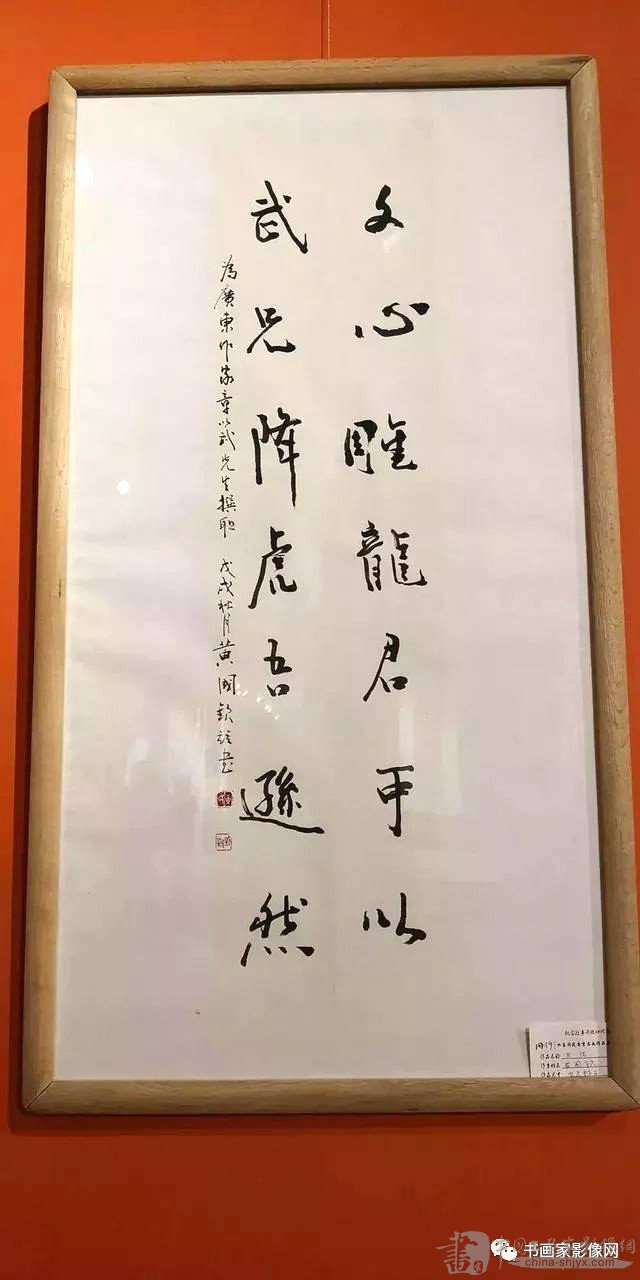 文心雕龍君可以
武兄降虎吾遜然
為廣東作家章以武先生撰聯 戊戌秋月黄國欽並書
书画家影像网
china-shjyx.com